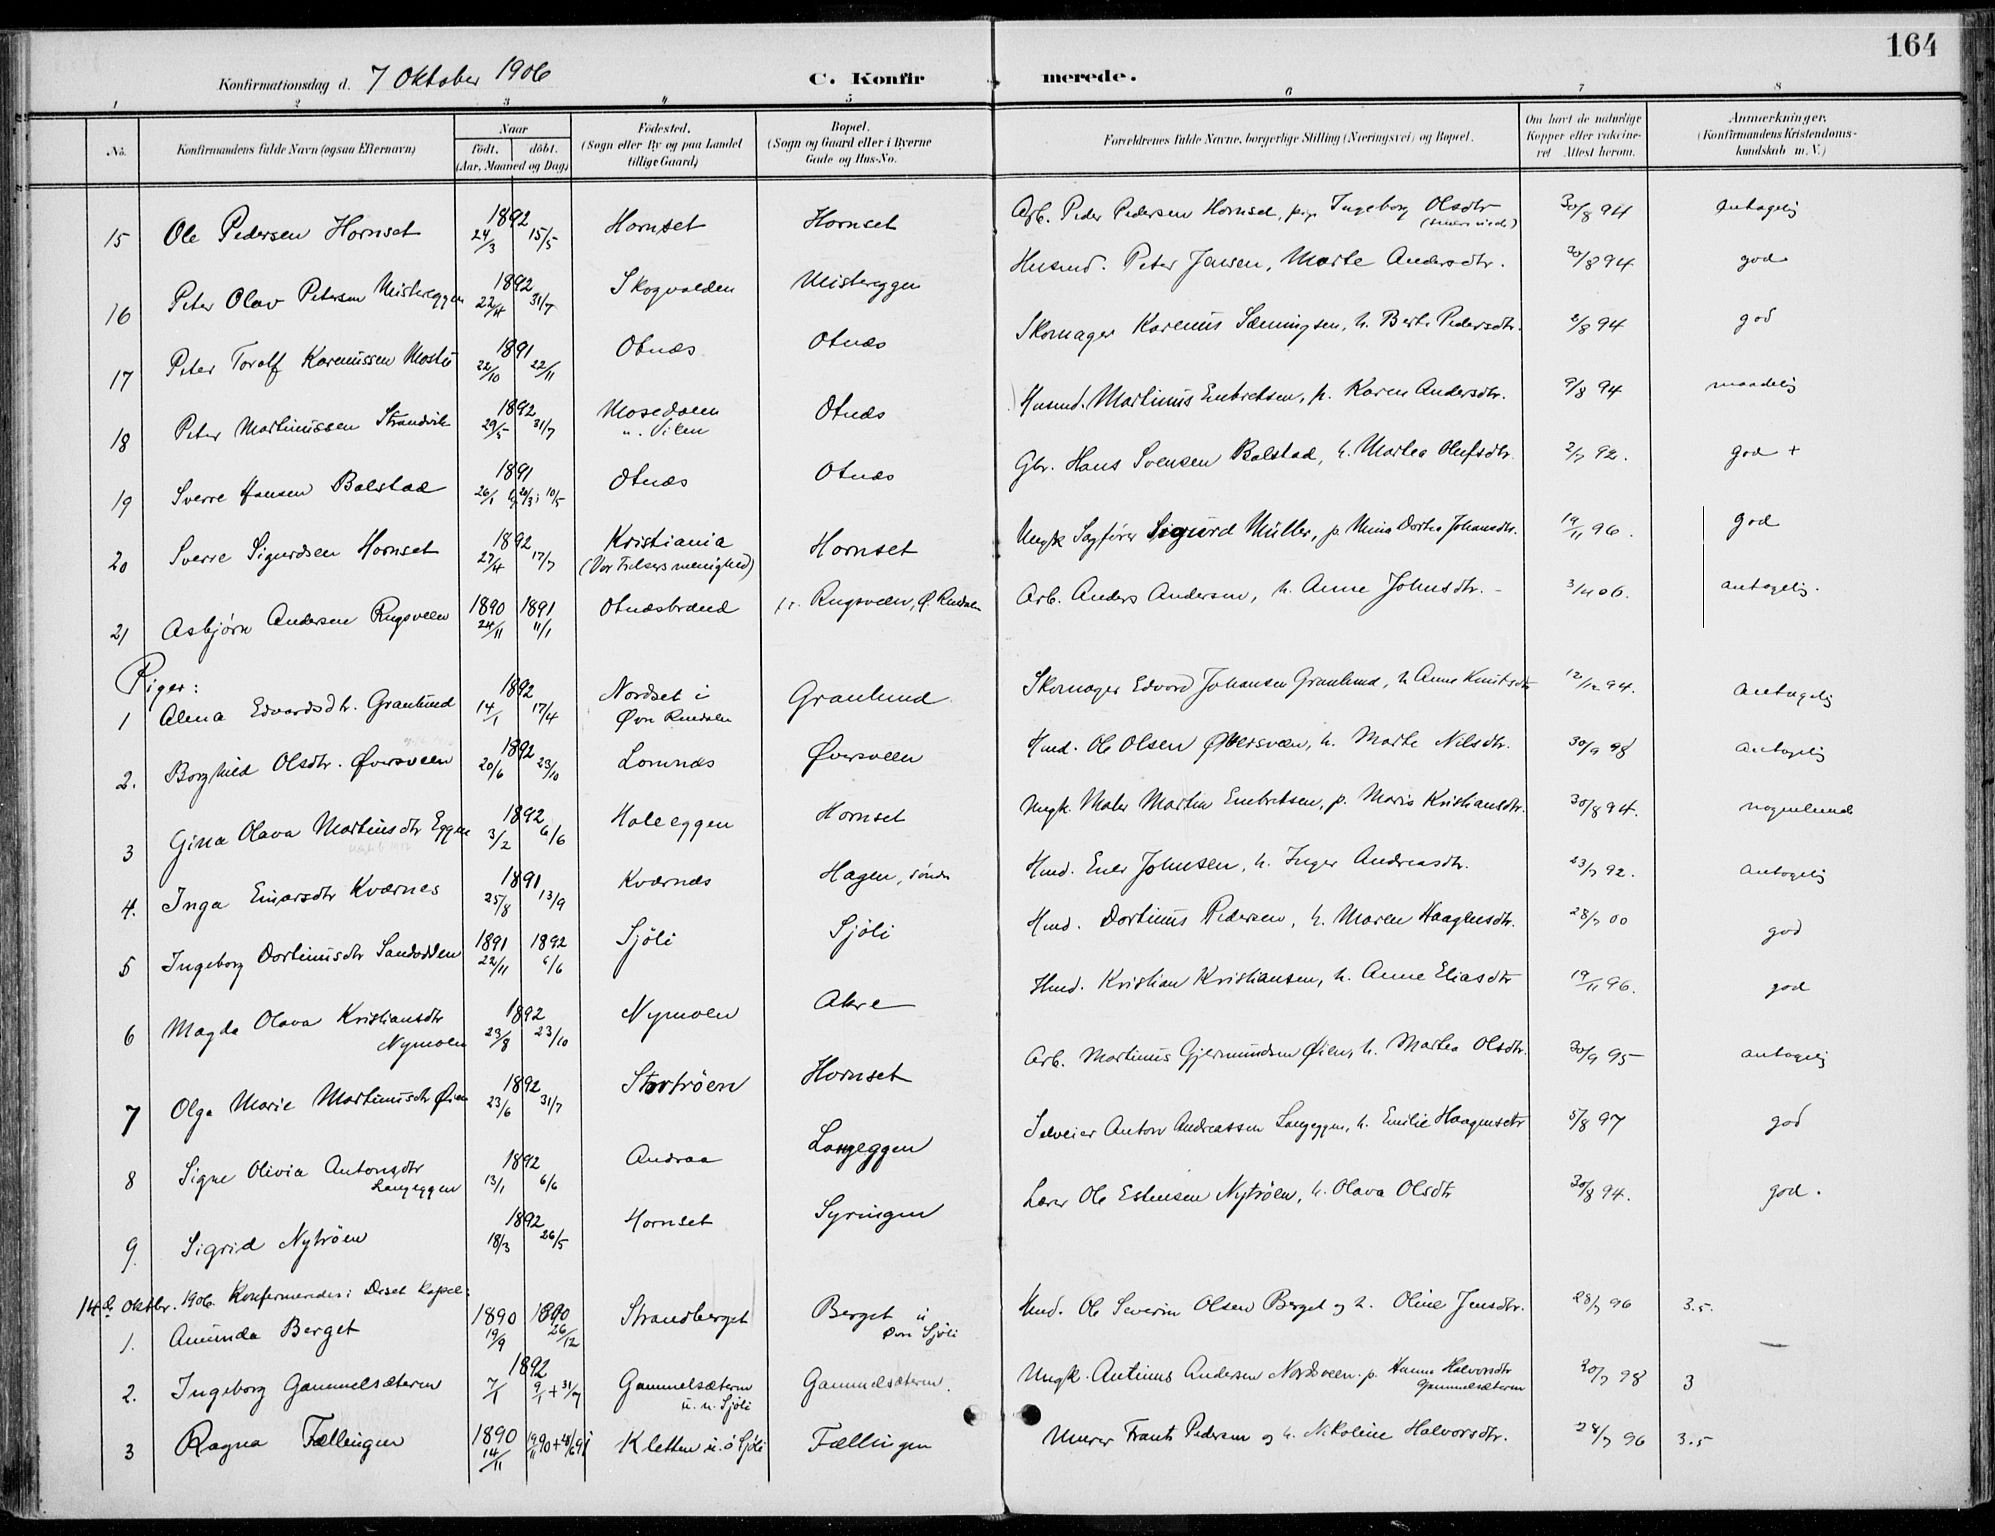 164
Konfirmationsdag d. 7 Oktober 1906 C. Konfirmerede.
1 2 3 4 5 6 7 8
No. Konfirmandens fulde Navn (ogsaa Efternavn) Naar født, døbt. (Aar, Maaned og Dag) Fødested, (Sogn eller By og paa Landet tillige Gaard) Bopæl. (Sogn og Gaard eller i Byerne Gade og Hus-No. Forældrenes fulde Navne, borgerlige Stilling (Næringsvei) og Bopæl. Om havt de naturlige Kopper eller vakcineret Attest herom. Anmærkninger. (Konfirmandens Kristendomskundskab m. V.)
15 Ole Pedersen Hornset 1892 24/3 15/5 Hornset Hornset Arb. Peder Pedersen Hornset, pige Ingeborg Olsdtr 30/8 94 antagelig
16 Peter Olav Petersen Mistereggen 1892 22/4 31/7 Skogvolden Mistereggen Husmd. Peter Jensen, Marte Andersdtr. 30/8 94 god
17 Peter Toralf Karenussen Mostu 1891 22/10 22/11 Otnæs Otnæs Skomager Karenus Sæmingsen, h. Berte Pedersdtr. 2/8 94 god
18 Peter Martinussen Strandvik 1892 29/5 31/7 Mosedalen u. Viken Otnæs Husmd. Martinus Embretsen, h. Karen Andersdtr. 9/8 94 maadelig
19 Sverre Hansen Bolstad 1891 26/1 20/3; 10/5 Otnæs Otnæs Gbr. Hans Svensen Bolstad, h. Martea Olufsdtr. 2/7 92. god +
20 Sverre Sigurdsen Hornset 1892 27/4 17/7 Kristiania (Vor Frelsers menighed) Hornset Ungk Sagfører Sigurd Müller, p. Mina Dortea Johansdtr. 19/11 96. god
21 Asbjørn Andersen Rugsveen 1890 24/11 1891 11/1 Otnæsbrænd Rugsveen, Ø. Rendalen Arb. Anders Andersen, h. Anne Johnsdtr. 3/4 06. antagelig.
Piger:
1 Alma Edvardsdtr. Granlund 1892 14/1 17/4 Nordset i Øvre Rendalen Granlund Skomager Edvard Johansen Granlund, h. Anne Knutsdtr 12/12 94. antagelig
2. Borghild Olsdtr. Øversveen 1892 20/6 23/10 Lomnæs Øversveen Hmd. Ole Olsen Øversveen, h. Marte Nilsdtr. 30/9 98 antagelig
3 Gina Olava Martinsdtr Eggen 1892 3/2 6/6 Holeeggen Hornset Ungk. Maler Martin Embretsen, p. Maria Kristiansdtr. 30/8 94. nogenlunde
4. Inga Einarsdtr Kværnes 1891 25/8 13/9 Kværnæs Hagen, søndre Hmd. Ener Johnsen, h. Inger Andreasdtr. 23/7 92. antagelig
5 Ingeborg Dortinusdtr Sandodden 1891 22/11 1892 6/6 Sjøli Sjøli Hmd. Dortinus Pedersen, h. Maren Haagensdtr. 28/7 00 god
6 Magda Olava Kristiansdtr Nymoen 1892 23/8 23/10 Nymoen Akre Hmd. Kristian Kristiansen, h. Anne Eliasdtr 19/11 96. god
7 Olga Marie Martinusdtr Øien 1892 23/6 31/7 Stortrøen Hornset Arb. Martinus Gjermundsen Øien, h. Martea Olsdtr. 30/9 95 antagelig
8 Signe Olivia Antonsdtr Langeggen 1892 13/1 6/6 Andraa Langeggen Selveier Anton Andreassen Langeggen, h. Emilie Haagensdtr 5/8 97 god
9. Sigrid Nytrøen 1892 18/3 26/5 Hornset Syringen Lærer Ole Estensen Nytrøen, h. Olava Olsdtr 30/8 94. god.
14de Oktbr. 1906. Konfirmeredes i Deset Kapel:
1. Amunda Berget 1890 19/9 1890 26/12 Strandberget Berget i Øvre Sjøli Hmd. Ole Severin Olsen Berget og h. Oline Jensdtr. 28/7 96 3.5
2. Ingeborg Gammelsæteren 1892 7/1 9/1 + 31/7 Gammelsæteren u. n. Sjøli Gammelsæteren. Ungk. Antinus Andersen Nordsveen. p. Hanna Halvorsdtr Gammelsæteren 20/7 98 3
3 Ragna Fællingen 1890 14/11 Kletten u. ø Sjøli Fællingen Murer Frants Pedersen og h. Nikoline Halvorsdtr. 28/7 96 3.5